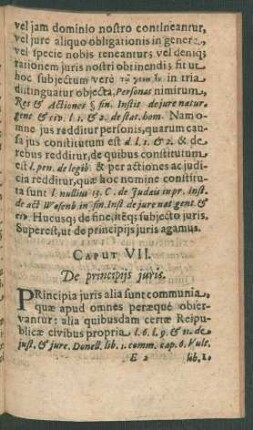 vel jam dominio nostro contineantur,
vel jure aliquo obligationis in genere,
vel specie nobis teneantur; vel deniq;
rationem juris nostri obtinendi; fit ut
hoc subjectum verè in tria
distinguatur objecta, Personas nimirum,
Res & Actiones § fin. Instit de jure natur.
gent & civ. l. 1. & 2. de stat. hom. Nam o-
mne jus redditur personis, quarum cau-
sa jus constitutum est d. l. 1. & 2. & de
rebus redditur, de quibus constitutum
est l. pen. de legib & per actiones ac judi-
cia redditur, quæ hoc nomine constitu-
ta sunt l. nullus 13. C. de Judæis in pr. inst.
de act Wesenb in § fin. Inst de jure nat gent. &
civ Hucusq; de fine, iteq; subjecto juris.
Superest, ut de principijs juris agamus.
CAPUT VII.
De principijs juris.
PRincipia juris alia sunt communia,
quæ apud omnes peræquè obser-
vantur: alia quibusdam certæ Reipu-
blicæ civibus propria l. 6. l. 9. & 11. de
just. & jure. Donell. lib. 1. comm. cap. 6. Vult.
E 2 lib. 1.